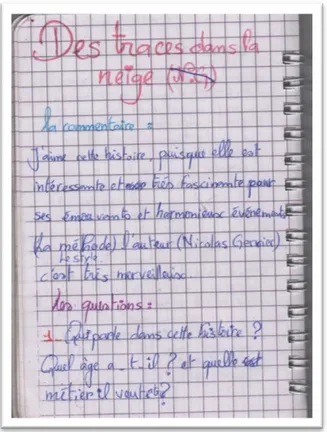 Des traces dans la
neige
la commentaire :
J'aime cette histoire, puisque elle est
intéressente et très fascinente pour
ses émouvants et harmonieux événements
(La méthode) l'auteur (Nicolas Gervix)
Le style
c'est très merveilleux.
Les questions :
1- Qui parle dans cette histoire ?
Quel âge a-t-il ? et quelle est
métier il veut ?